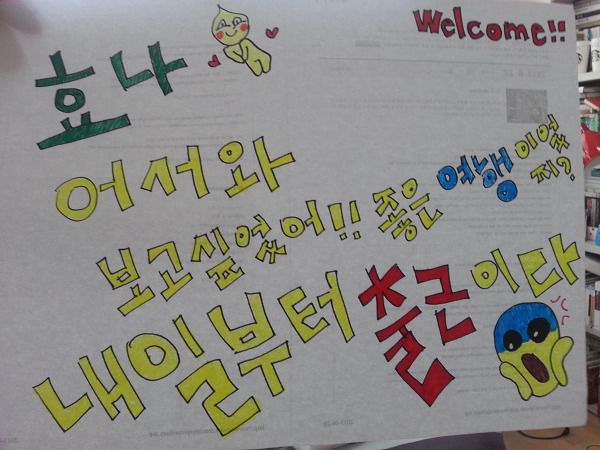 Welcome!!
효나
어서와
보고싶었어!! 좋은 여행이었지?
내일부터 출근이다